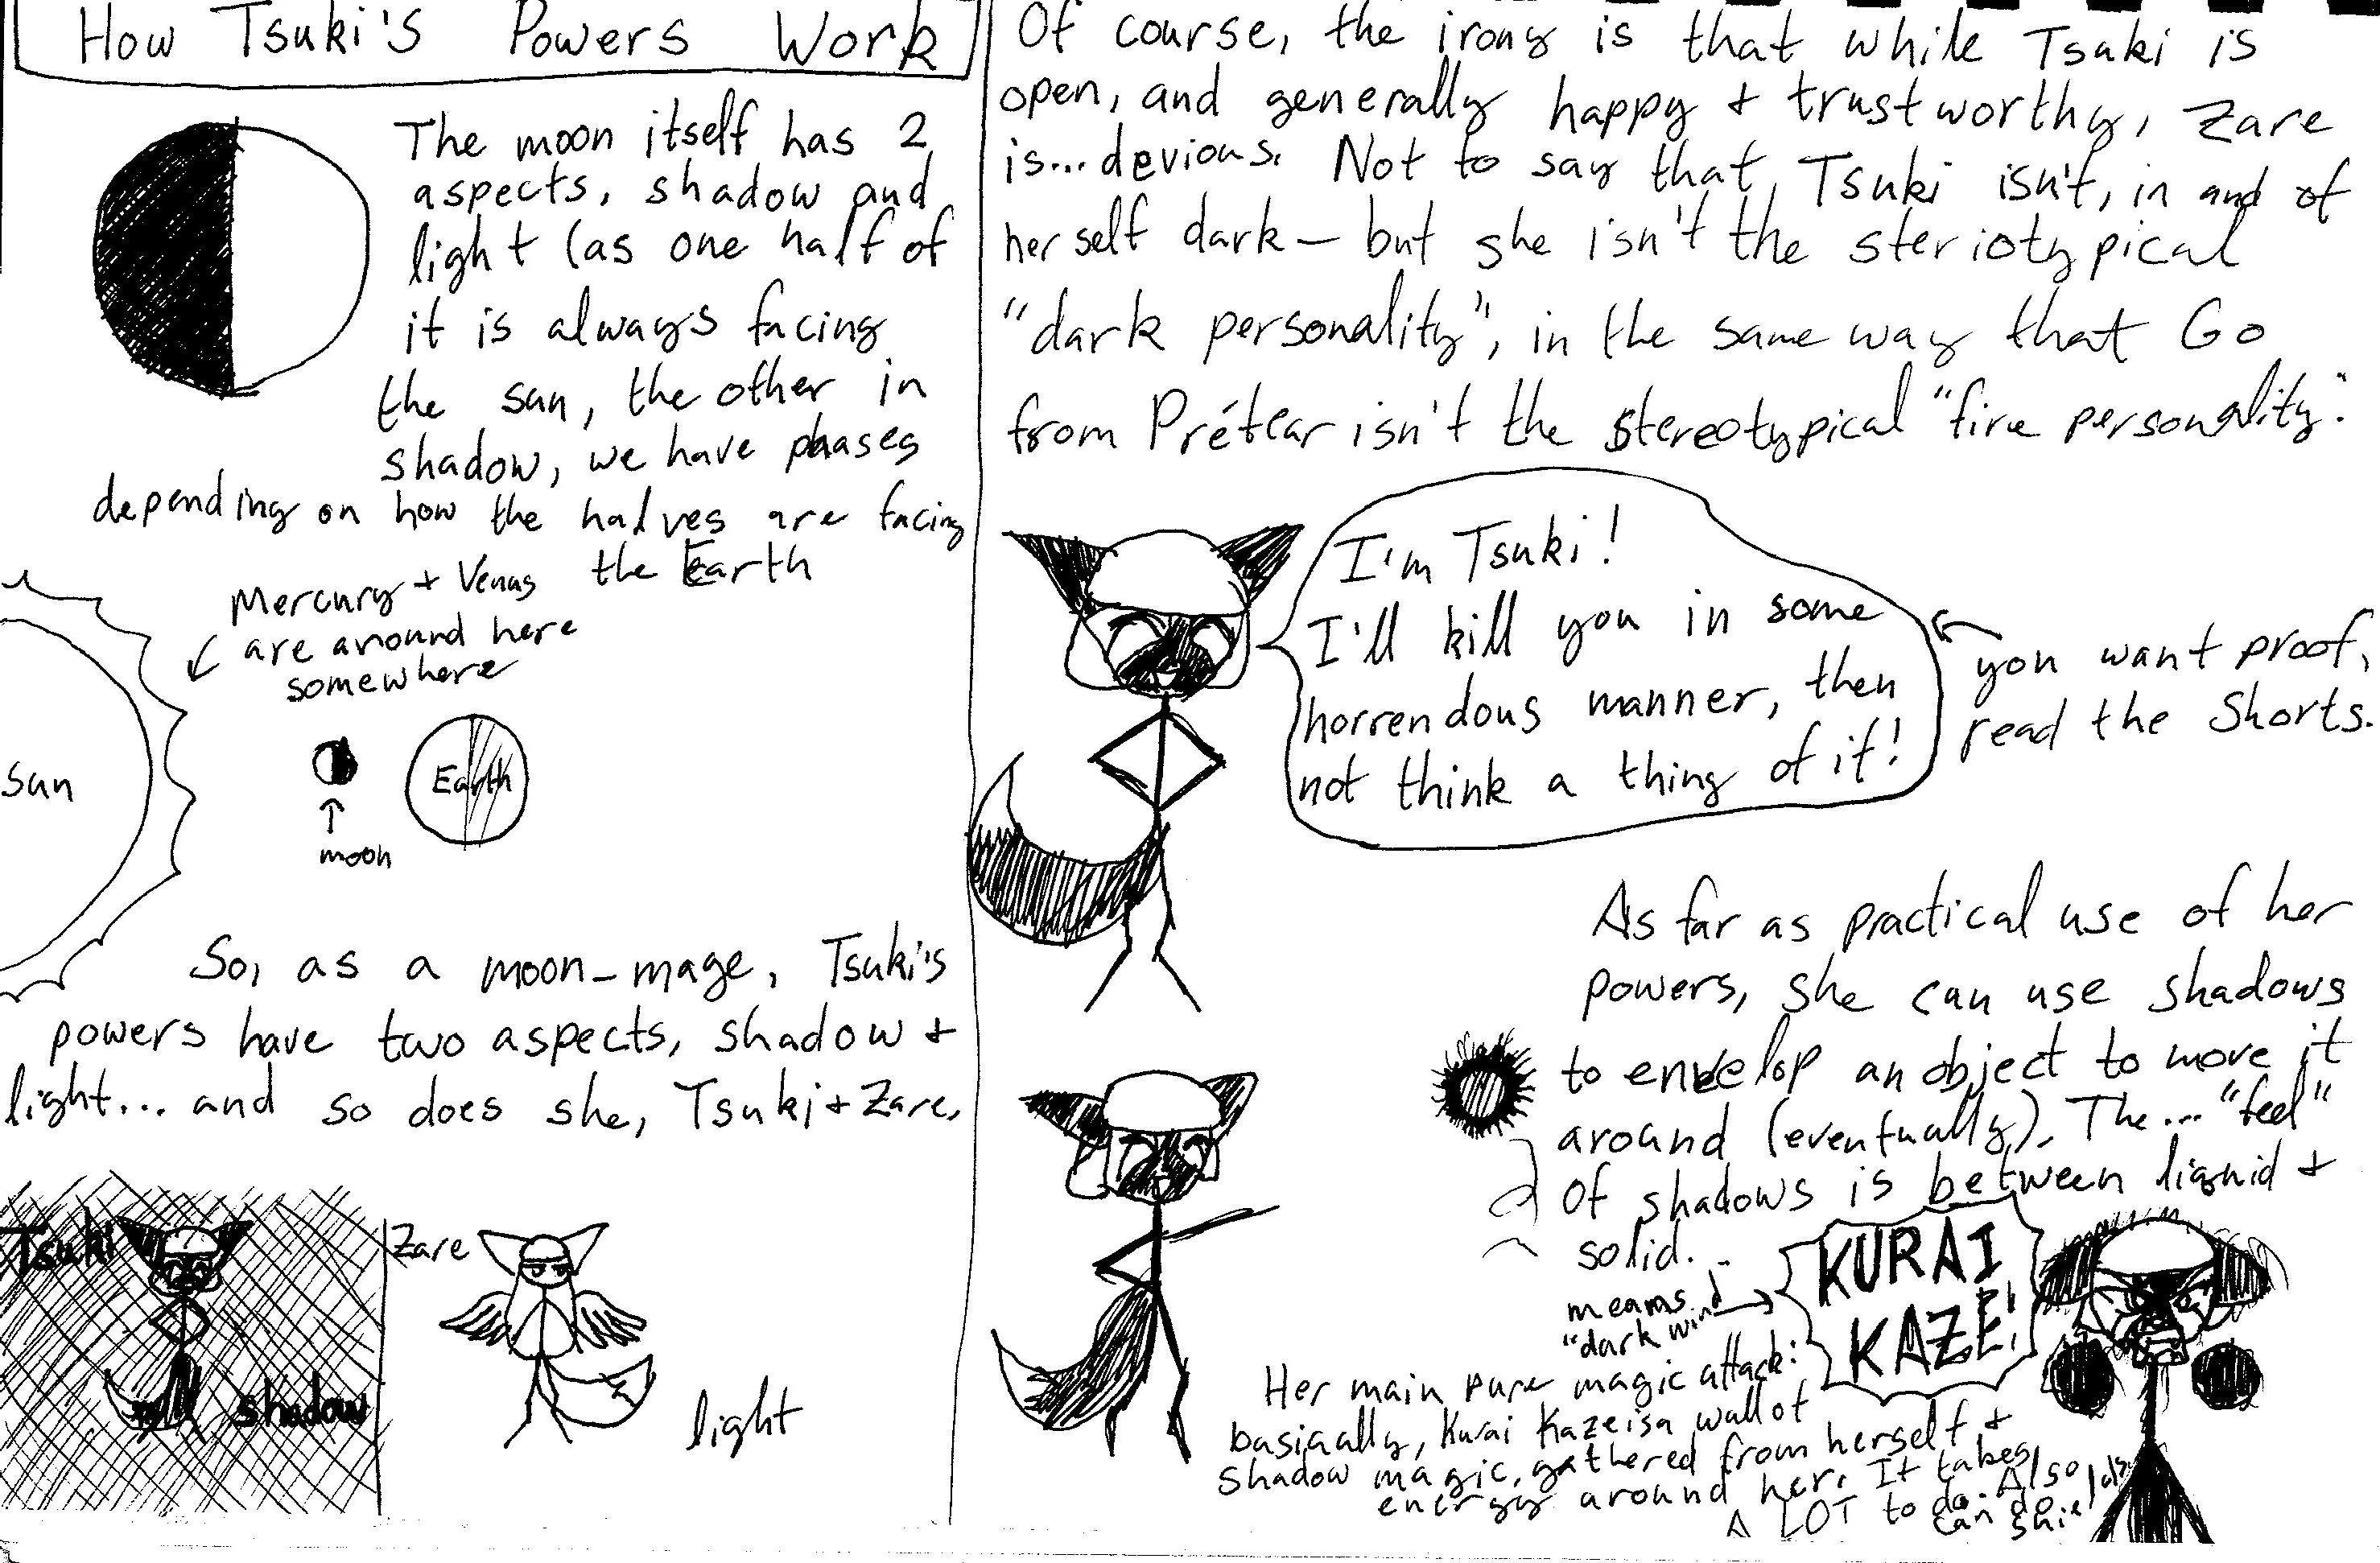 How Tsuki's Powers Work
The moon itself has 2
aspects, shadow and
light (as one half of
it is always facing
the sun, the other in
shadow, we have phases
depending on how the halves are facing
the Earth
Mercury + Venus
are around here
somewhere
sun
Earth
moon
So, as a moon-mage, Tsuki's
powers have two aspects, shadow +
light... and so does she, Tsuki + Zare.
Tsuki
shadow
Zare
light
Of course, the irony is that while Tsuki is
open, and generally happy + trustworthy, Zare
is... devious. Not to say that Tsuki isn't, in and of
herself dark - but she isn't the steriotypical
"dark personality", in the same way that Go
from Prétear isn't the stereotypical "fire personality".
I'm Tsuki!
I'll kill you in some
horrendous manner, then
not think a thing of it!
you want proof,
read the Shorts.
As far as practical use of her
powers, she can use shadows
to envelop an object to move it
around (eventually). The... "feel"
of shadows is between liquid +
solid.
means
"dark wind"
KURAI
KAZE!
Her main pure magic attack:
basically, Kurai Kaze is a wall of
shadow magic, gathered from herself +
energy around her. It takes
A LOT to do. Also
can do shields